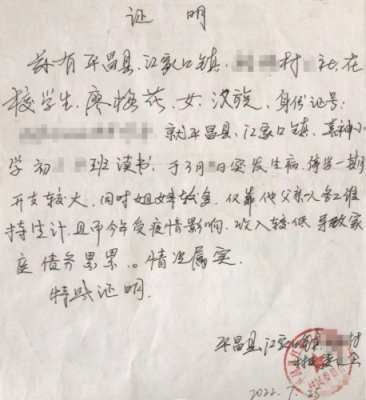 证 明
兹有平昌县、江家口镇、村社、在
校学生、廖梅花、女、汉族、身份证号:
就平昌县、江家口镇、真神小
学初班读书、于3月日突发生病、
开支较大、同时姐妹较多、仅靠他父亲人务工维
持生计、且而今年受疫情影响、收入较低导致家
庭债务累累。情况属实.
特此证明.
平昌县、江家口镇村
村委会
2022.7.25